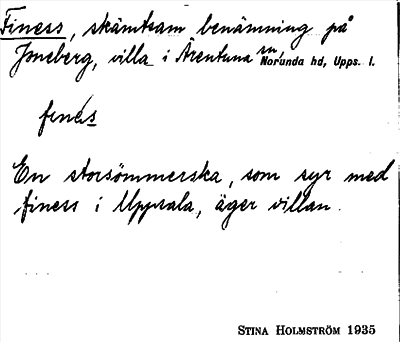 Finess, skämtsam benämning på
Jmeberg, villa i Ärentuna sn, Norunda hd, Upps. l.
finés
En storsömmerska, som syr med
finess i Uppsala, äger villan.
STINA HOLMSTRÖM 1935